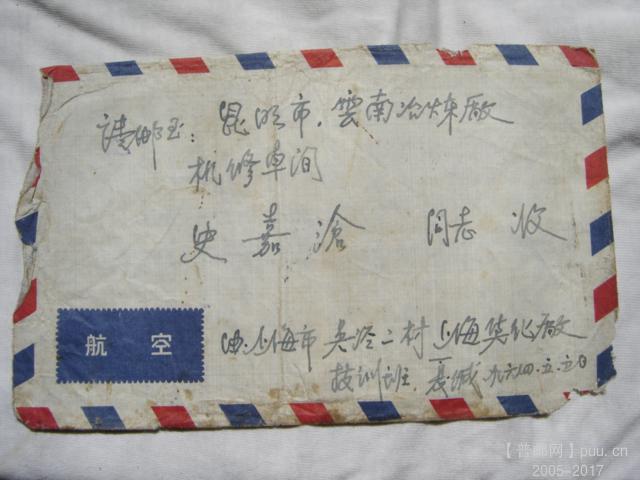 请邮至：昆明市，雲南冶炼廠
机修車间
史嘉滄 同志 收
航 空
由：上海市吴泾二村上海焦化廠
技训班，夏诚 九六四.五.五日
【普邮网】puu.cn
2005-2017